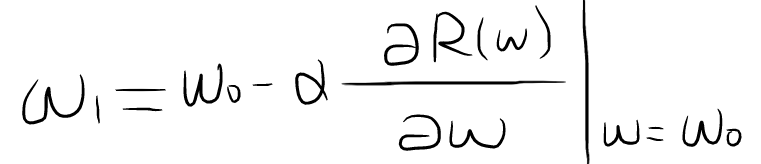 w₁ = w₀ - α ∂R(w)/∂w |w = w₀